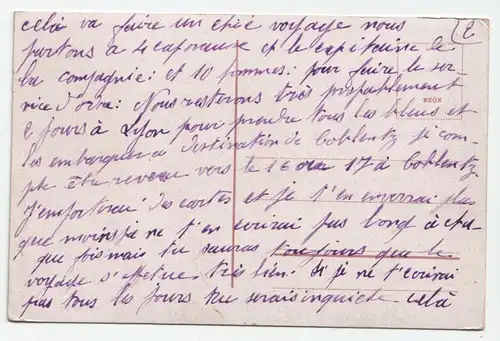 celà va faire un chic voyage nous
partons a 4 caporaux et le capitaine de
la compagnie: et 10 hommes: pour faire le ser-
vice d'ordre: Nous resterons très probablement
2 jours à Lyon pour prendre tous les bleus et
les embarquer a destination de Coblentz je com-
pte être revenu vers le 16 ou 17 à Coblentz.
J'emporterai des cartes et je t'en enverrai plus
que moins je ne t'en ecrirai pas long à cha-
que fois mais tu sauras toujours que le
voyage s'effectue très bien: si je ne t'ecrirai
pas tous les jours tu serais inquiete celà
REÖN